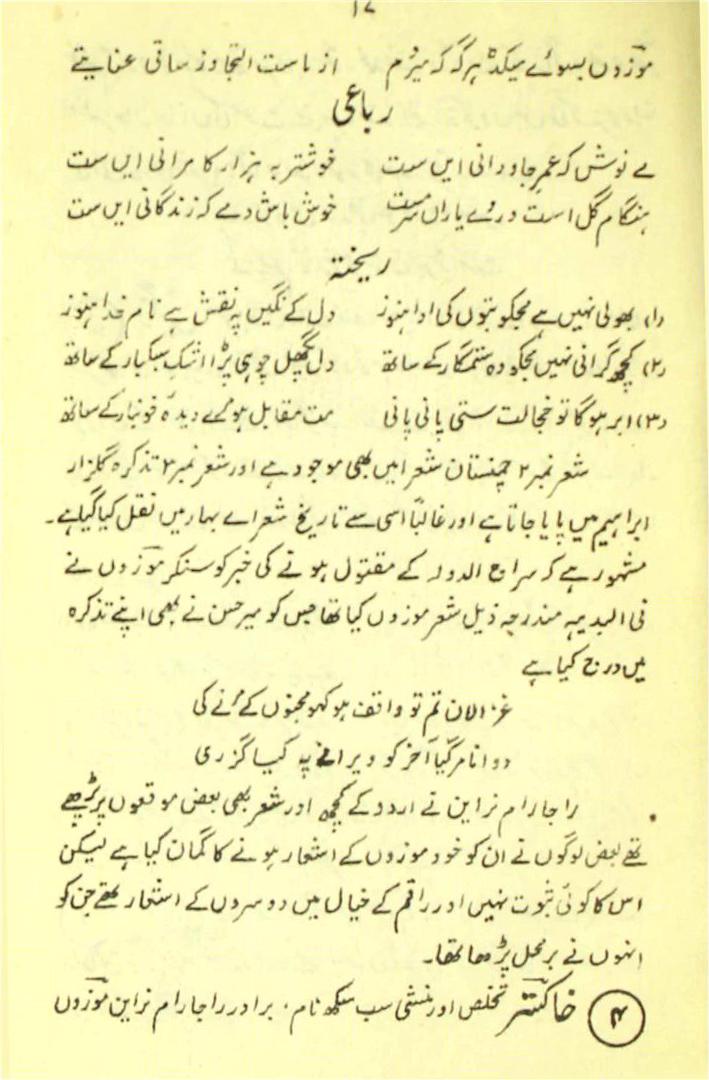 ۱۷
موزوں بسوئے میکدہ ہر گہ کہ میرم از ماست التجا وز ساقی عنایتے
رباعی
مے نوش کہ عمر جاودانی ایں ست خوشتر بہ ہزار کامرانی ایں ست
ہنگام گل است و یاراں سرمست خوش باش دمے کہ زندگانی ایں ست
ریختہ
(۱) بھولی نہیں ہے مجکو بتوں کی ادا ہنوز دل کے نگیں پہ نقش ہے نام خدا ہنوز
(۲) کچھ گرانی نہیں مجکو دہ ستمگار کے ساتھ دل پگھل جو ہی پڑا اشک سبکبار کے ساتھ
(۳) ابر ہوگا تو خجالت ستی پانی پانی مت مقابل ہو مرے دیدۂ خونبار کے ساتھ
شعر نمبر ۲ چمنستان شعرا میں بھی موجود ہے اور شعر نمبر ۳ تذکرہ گلزار
ابراہیم میں پایا جاتا ہے اور غالباً اسی سے تاریخ شعراے بہار میں نقل کیا گیا ہے۔
مشہور ہے کہ سراج الدولہ کے مقتول ہونے کی خبر کو سنکر موزوں نے
فی البدیہہ مندرجہ ذیل شعر موزوں کیا تھا جس کو میر حسن نے بھی اپنے تذکرہ
میں درج کیا ہے
غزالان تم تو واقف ہو کہو مجنوں کے مرنے کی
دوانا مر گیا آخر کو ویرانے پہ کیسا گزری
راجا رام نراین نے اردو کے کچھ اور شعر بھی بعض موقعوں پر پڑھے
تھے بعض لوگوں نے ان کو خود موزوں کے اشعار ہونے کا گمان کیا ہے لیکن
اس کا کوئی ثبوت نہیں اور راقم کے خیال میں دوسروں کے اشعار تھے جن کو
انہوں نے برمحل پڑھا تھا۔
(۴) خاکستر تخلص اور منشی سب سکھ نام، برادر راجا رام نراین موزوں